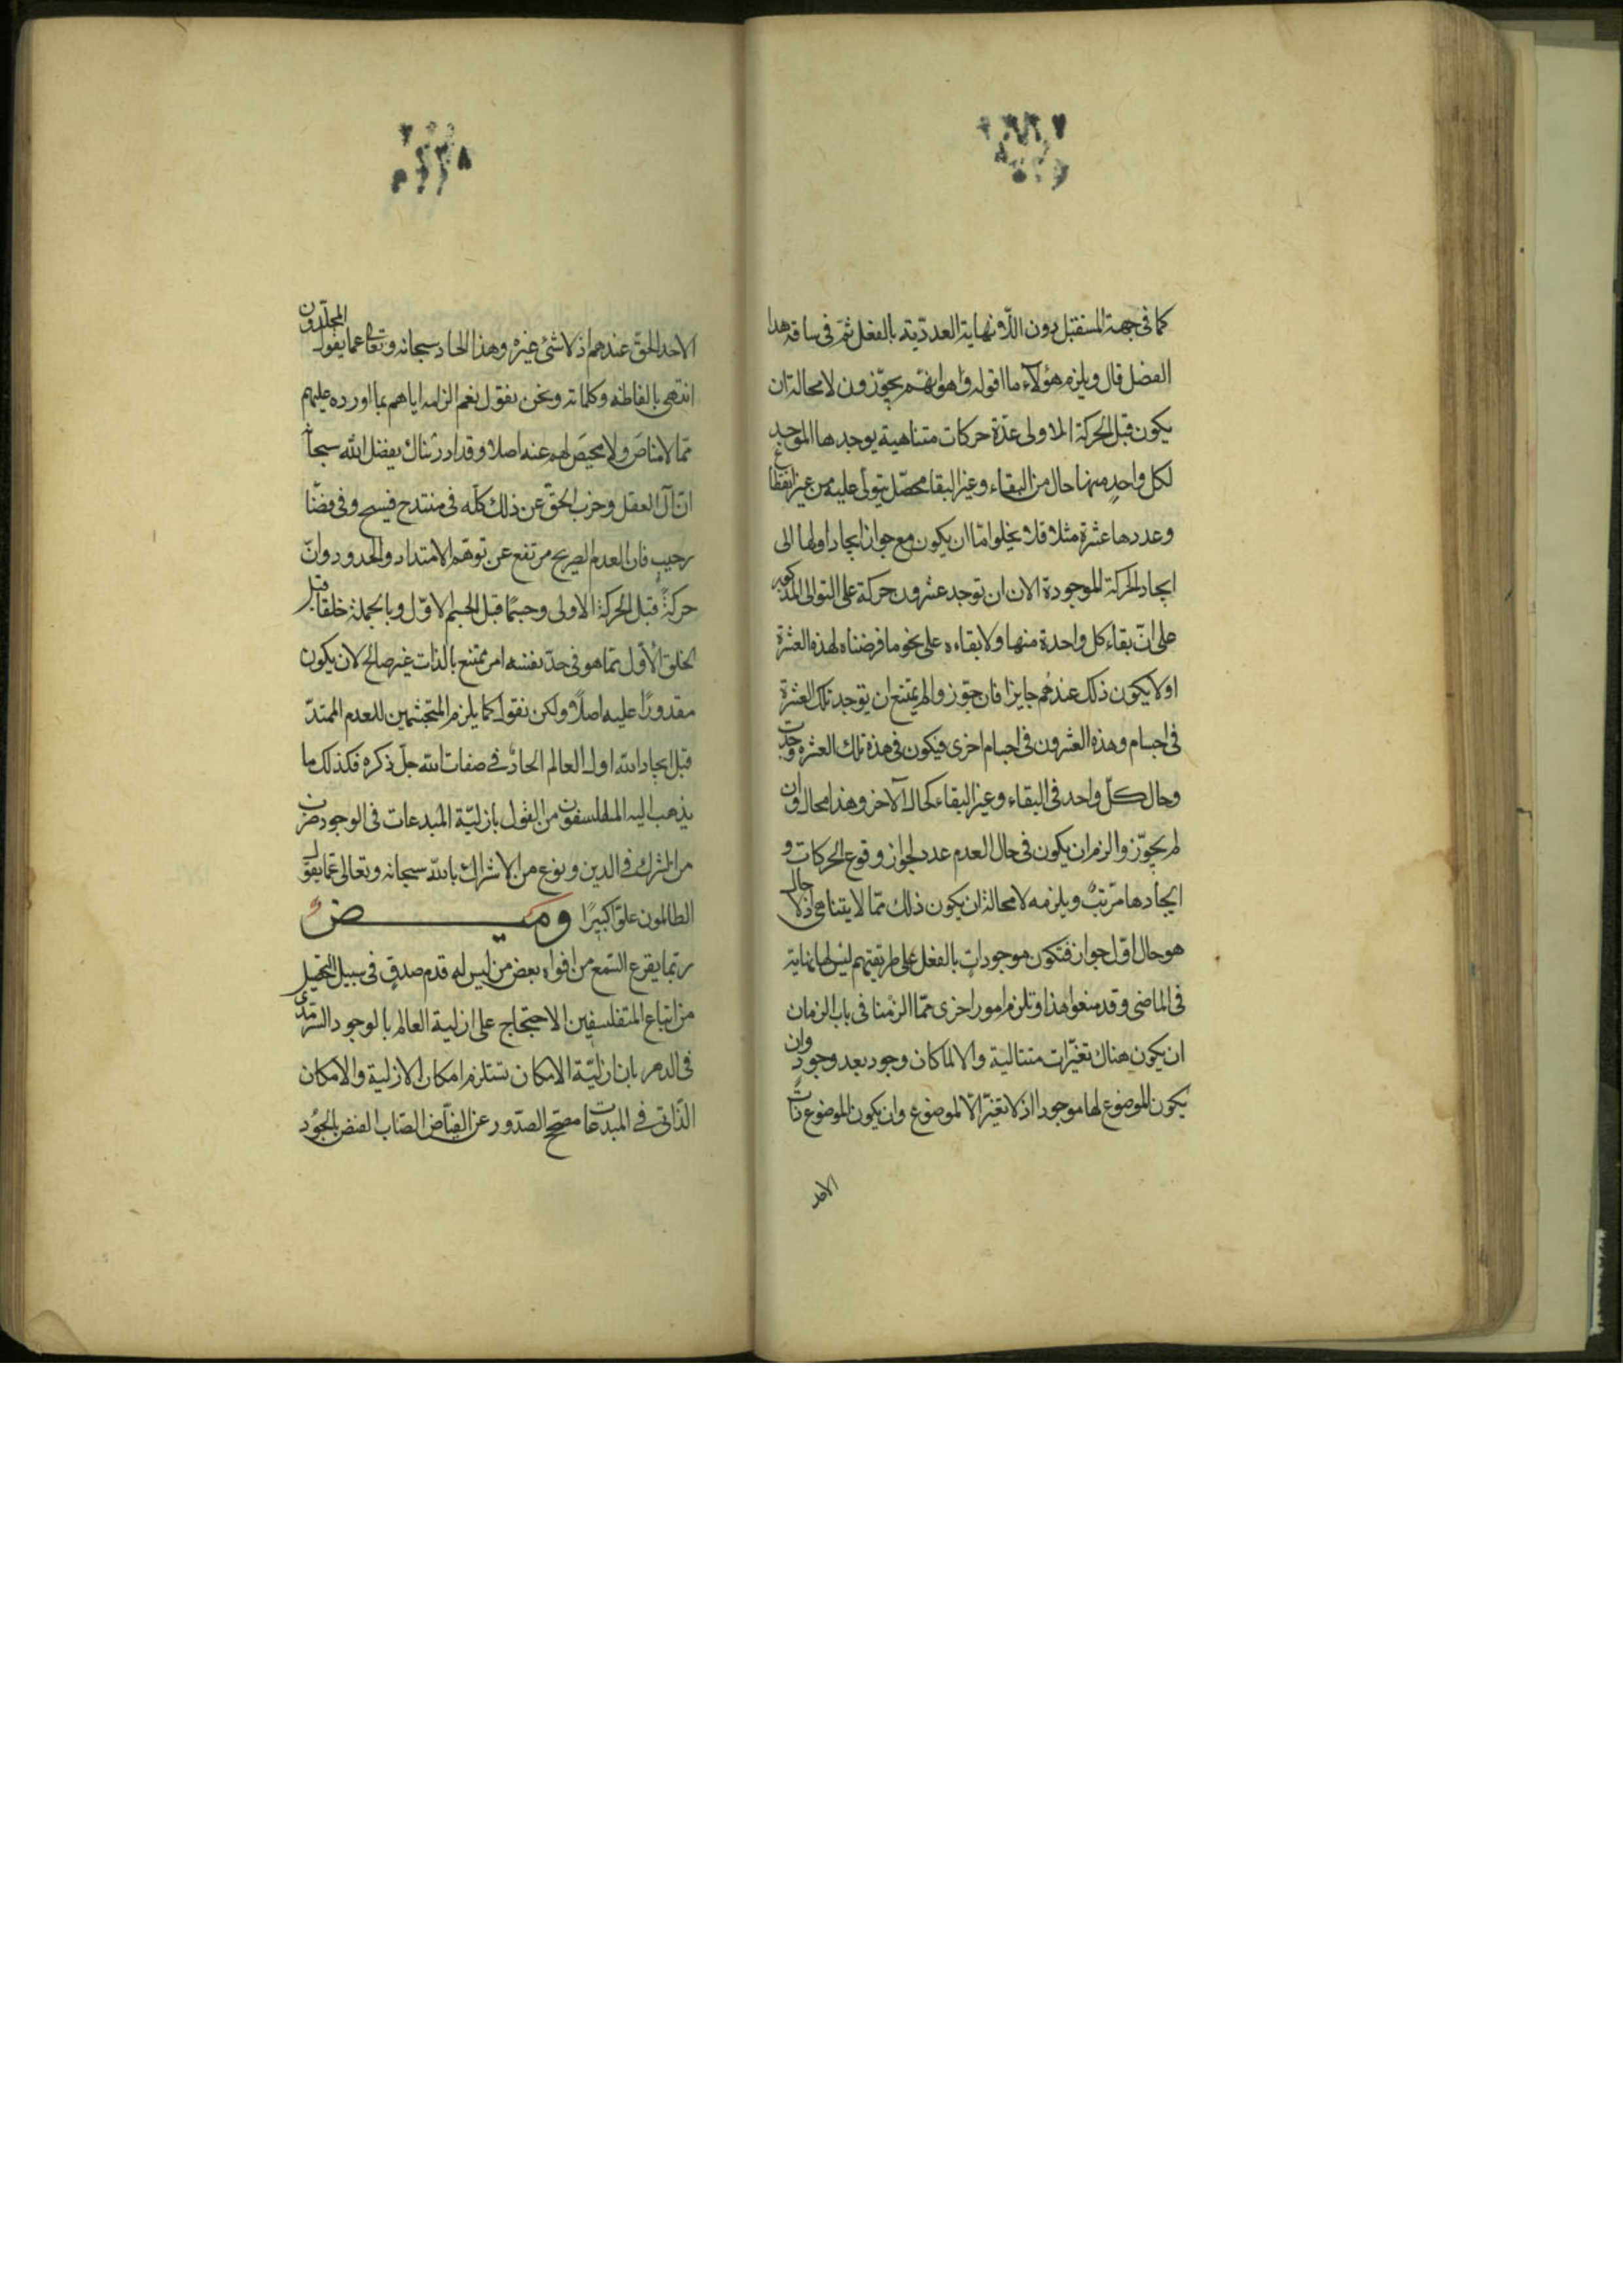 كما فى جهة المستقبل دون اللانهاية العددية بالفعل ثم فى ساقة هذا
الفصل قال ويلزم هؤلاء ما اقوله وهو انهم يجوّزون لا محالة ان
يكون قبل الحركة الاولى عدّة حركات متناهية يوجدها الموجد
لكل واحدٍ منها حال من البقاء وغير البقا محصّل يتولى عليه من غير انقطاع
وعددها عشرة مثلا فلا يخلو امّا ان يكون مع جواز ايجاد اولها الى
ايجاد الحركة الموجودة الان ان توجد عشرون حركة على التوالى المذكور
على انّ بقاء كل واحدة منها ولا بقاءه على نحو ما فرضناه لهذه العشرة
او لا يكون ذلك عندهم جايزا فان جوّز والم يمتنع ان توجد تلك العشرة
فى اجسام وهذه العشرون فى اجسام اخرى فيكون فى هذة تلك العشره وجدت
وحال كلّ واحد فى البقاء وغير البقاء كحال الآخر وهذا محال وان
لم يجوّز والزم ان يكون فى حال العدم عدد لجواز وقوع الحركات و
ايجادها مرتبٌ ويلزمه لا محالة ان يكون ذلك ممّا لا يتناهى اذ لا حال
هو حال اوّل جواز فتكون موجودات بالفعل على طريقتهم ليس لها نهاية
فى الماضى وقد منعوا هذا وتلزم امور اخرى ممّا الزمنا فى باب الزمان
ان يكون هناك تغيّرات متتالية والا لما كان وجود بعد وجود وان
يكون الموضوع لها موجودا اذ لا تغيّر الّا لموضوع وان يكون الموضوع ذات
الاحد
الاحد الحقّ عندهم اذ لا شئ غيره وهذا الحاد سبحانه وتعالى عما يقول الملحدون
انتهى بالفاظه وكلماته ونحن نقول نعم الزامه اياهم بما اورده عليهم
ممّا لا مناص ولا محيَص لهم عنه اصلا وقد ادريناك بفضل الله سبحانه
انّ آل العقل وحزب الحقّ عن ذلك كلّه فى منتدح فيسح وفى فضّا
رحيبٍ فان العدم الصريح مرتفع عن توهّم الامتداد والحدود وانّ
حركةً قبل الحركة الاولى وجسمًا قبل الجسم الاوّل وبالجملة خلقا قبل
الخلق الاوّل ممّا هو فى حدّ نفسه امر يمتنع بالذات غير صالح لان يكون
مقدورًا عليه اصلًا ولكن نقول كما يلزم المتجشّمين للعدم الممتدّ
قبل ايجاد الله اول العالم الحادٌ فى صفات الله جلّ ذكره فكذلك ما
يذهب اليه المتفلسفون من القول بازليّة المبدعات فى الوجود ضرب
من الشرك فى الدين ونوع من الاشراك بالله سبحانه وتعالى عمّا يقول
الظالمون علوّا كبيرًا وميض
ربّما يقرع السّمع من افواه بعض من ليس له قدم صدقٍ فى سبيل التحصيل
من اتباع المتفلسفين الاحتجاج على ازلية العالم بالوجود السّرمدى
فى الدهر بان ازليّة الامكان تستلزم امكان الازلية والامكان
الذّاتى فى المبدعات مصحّح الصدّور عن الفيّاض الصّاب الفيض بالجُود